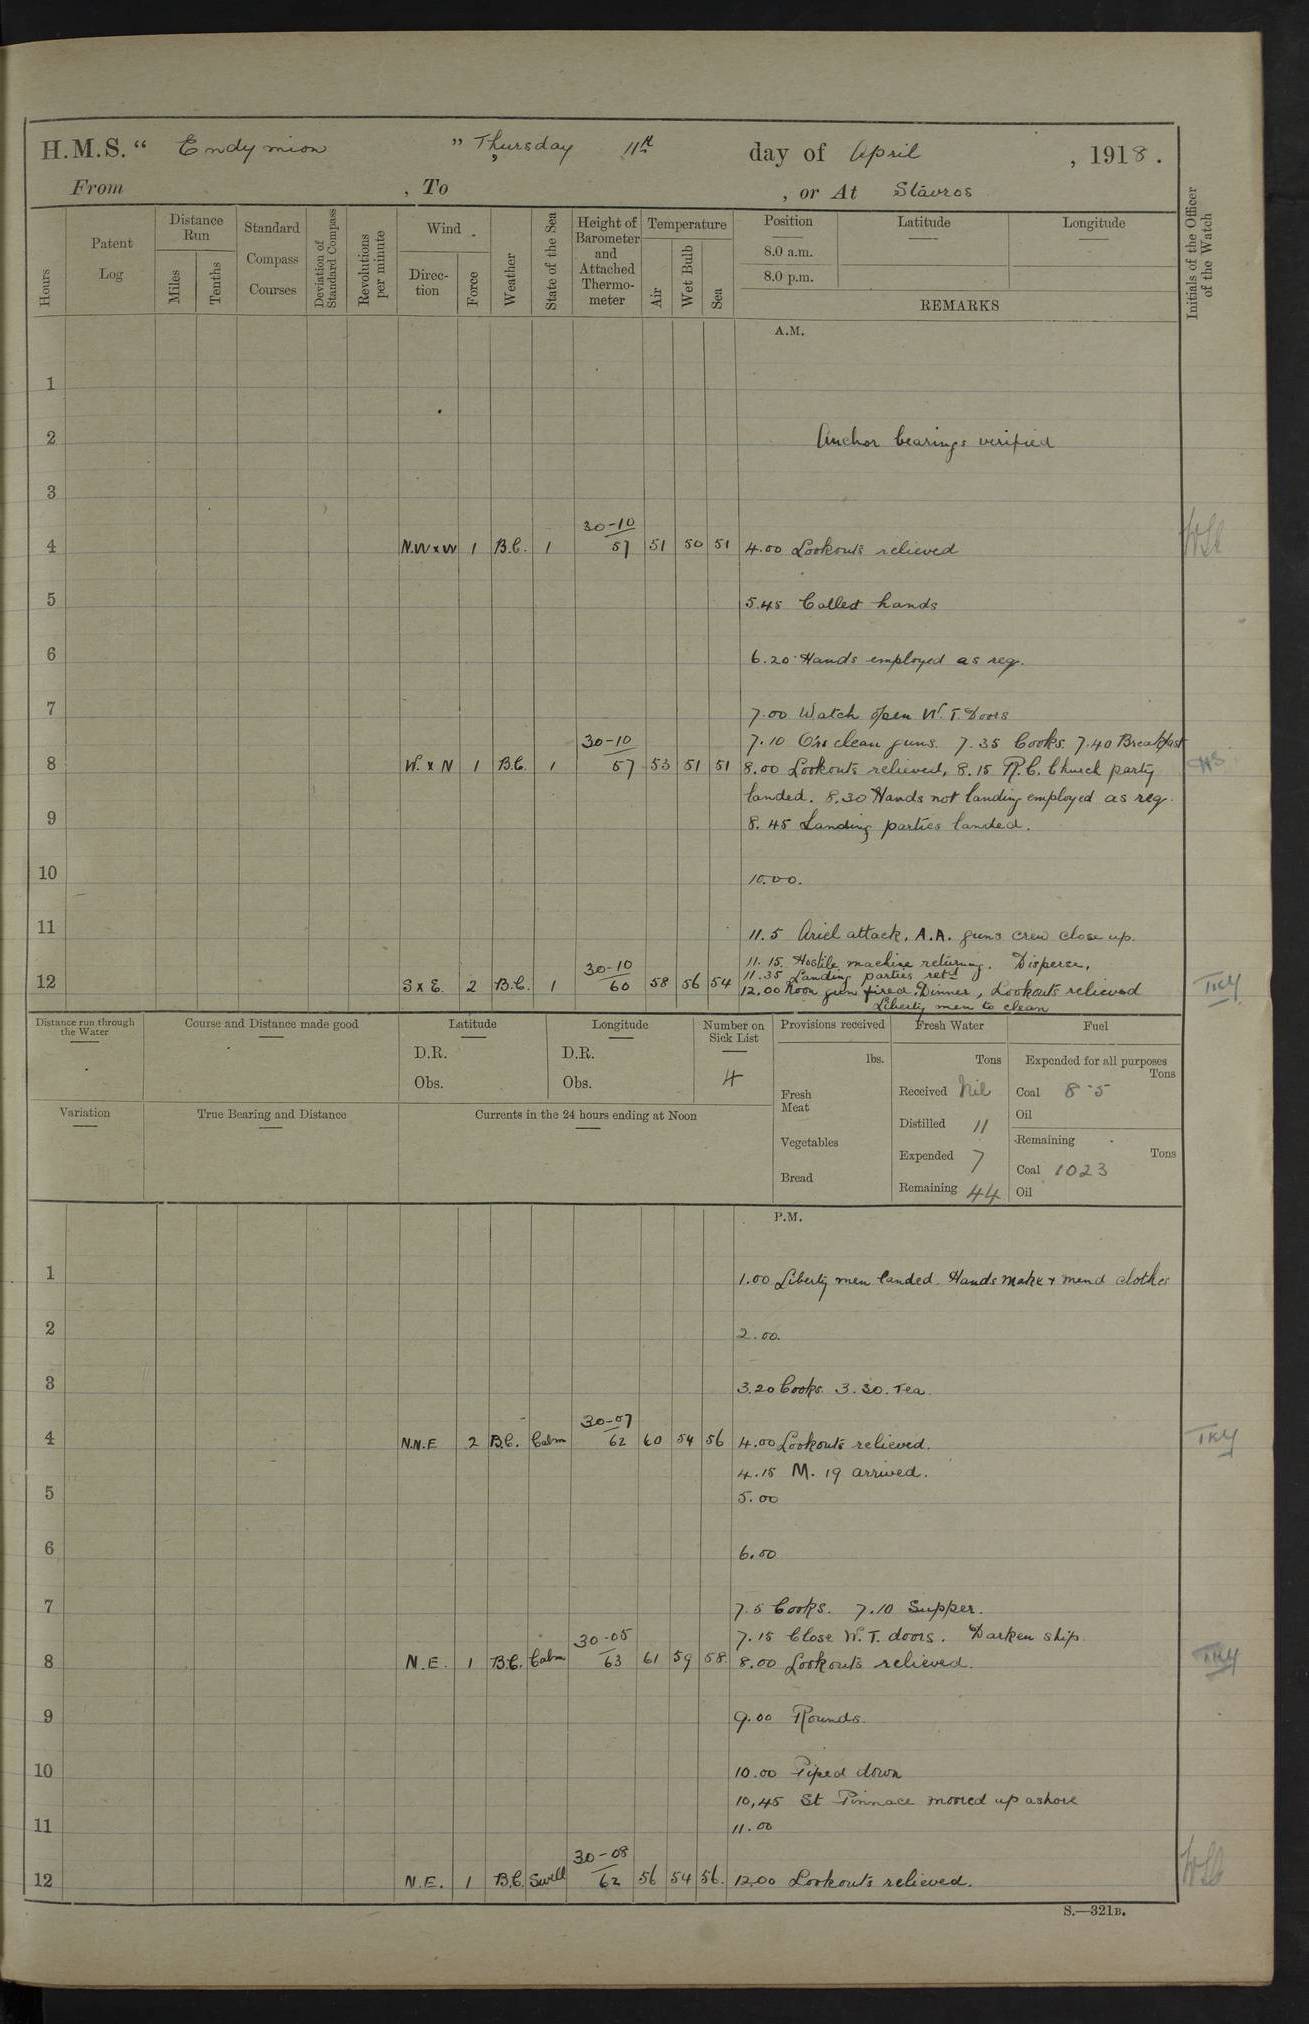 H.M.S. “ Endymion ” Thursday 11th day of April , 1918.
From , To , or At Stavros
Hours
Patent Log
Distance Run
Miles
Tenths
Standard Compass Courses
Deviation of Standard Compass
Revolutions per minute
Wind
Direc-tion
Force
Weather
State of the Sea
Height of Barometer and Attached Thermo-meter
Temperature
Air
Wet Bulb
Sea
Position Latitude Longitude
8.0 a.m.
8.0 p.m.
REMARKS
Initials of the Officer of the Watch
A.M.
1
2 Anchor bearings verified
3
30-10
4 N.W x W 1 B.C. 1 57 51 50 51 4.00 Lookouts relieved
5 5.45 Called hands
6 6.20 Hands employed as req.
7 7.00 Watch open W.T. Doors
30-10 7.10 Qrs clean guns. 7.35 Cooks. 7.40 Breakfast
8 W. x N 1 B.C. 1 57 53 51 51 8.00 Lookouts relieved, 8.15 R.C. Church party
landed. 8.30 Hands not landing employed as req.
9 8.45 Landing parties landed.
10 10.00.
11 11.5 Ariel attack. A.A. guns crew close up.
11.15. Hostile machine returning. Disperse,
30-10 11.35 Landing parties retd
12 S x E. 2 B.C. 1 60 58 56 54 12.00 Noon gun fired. Dinner, Lookouts relieved TKY
Liberty men to clean
Distance run through the Water
Course and Distance made good
Latitude
D.R.
Obs.
Longitude
D.R.
Obs.
Number on Sick List
4
Variation
True Bearing and Distance
Currents in the 24 hours ending at Noon
Provisions received
lbs.
Fresh Meat
Vegetables
Bread
Fresh Water
Tons
Received Nil
Distilled 11
Expended 7
Remaining 44
Fuel
Expended for all purposes
Tons
Coal 8-5
Oil
Remaining
Tons
Coal 1023
Oil
P.M.
1 1.00 Liberty men landed. Hands make & mend clothes
2 2.00.
3 3.20 Cooks. 3.30. Tea.
30-07
4 N.N.E 2 B.C. Calm 62 60 54 56 4.00 Lookouts relieved. TKY
4.15 M. 19 arrived.
5 5.00
6 6.00
7 7.5 Cooks. 7.10 Supper.
30-05 7.15 Close W.T. doors. Darken ship.
8 N.E. 1 B.C. Calm 63 61 59 58. 8.00 Lookouts relieved. TKY
9 9.00 Rounds.
10 10.00 Piped down
10,45 St Pinnace moored up ashore
11 11.00
30-08
12 N.E. 1 B.C. Swell 62 56 54 56. 12.00 Lookouts relieved.
S.—321B.